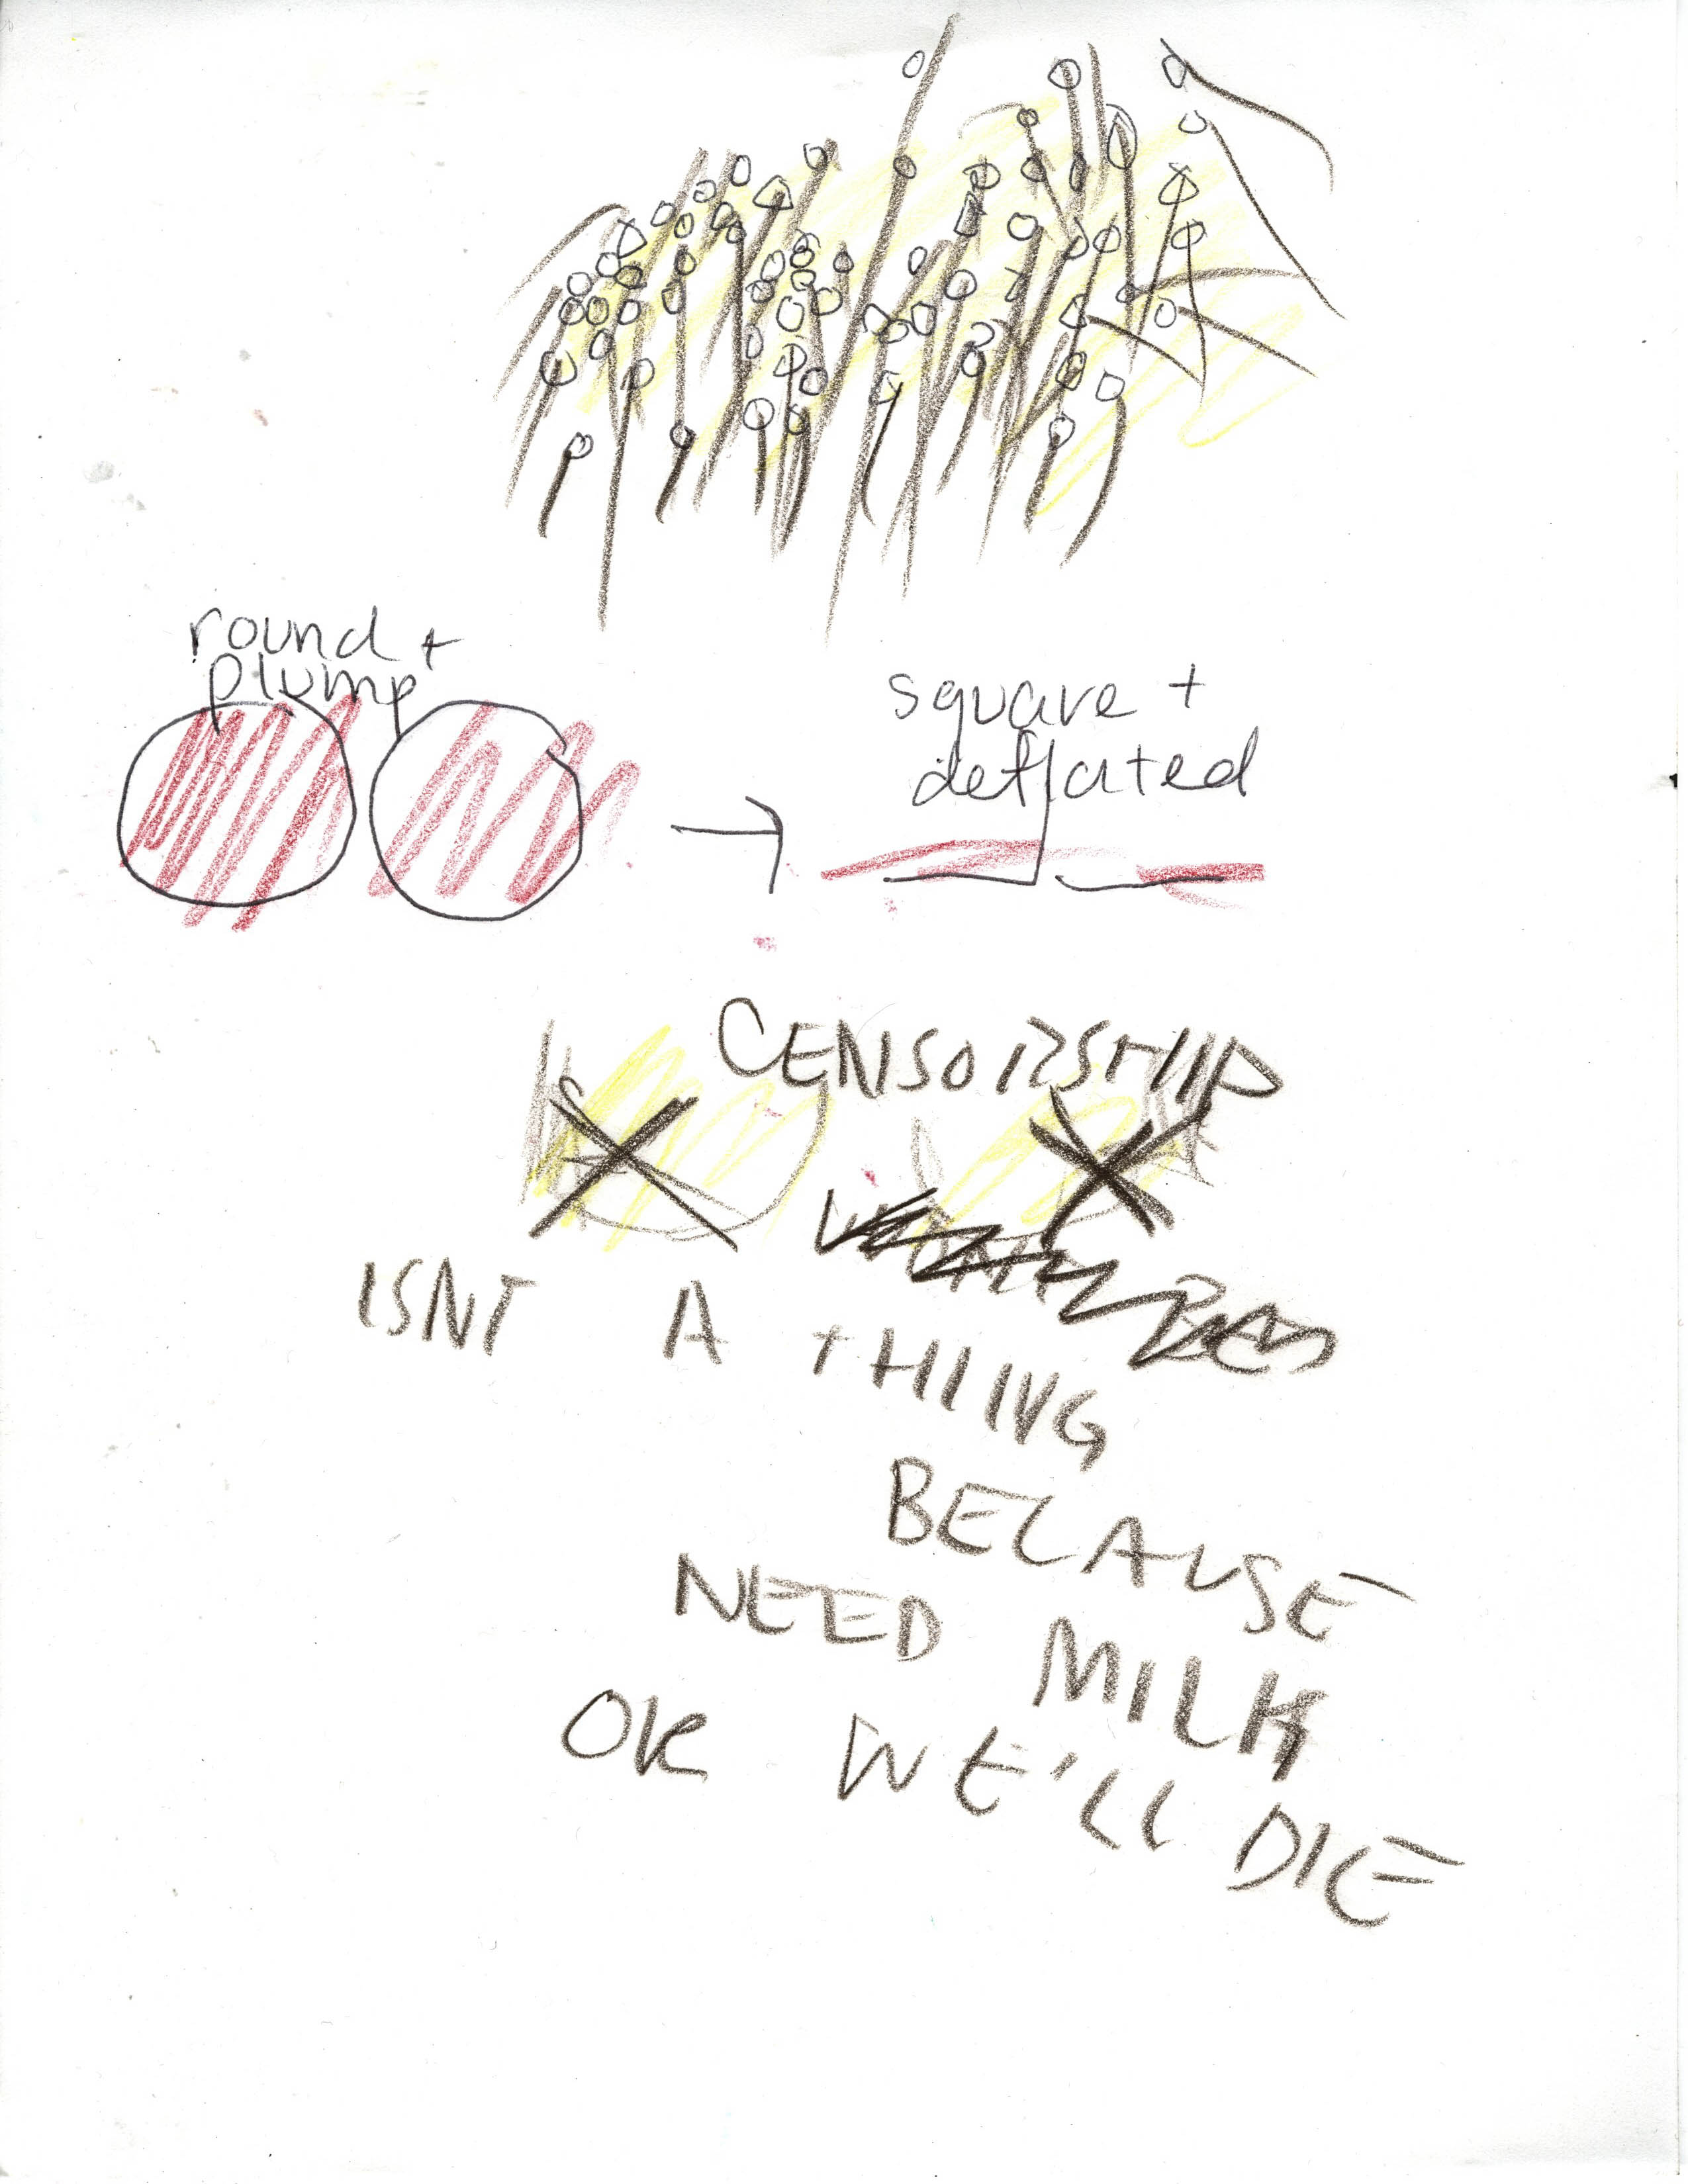 round +
plump
square +
deflated
CENSORSHIP
ISNT A tHIING
BECAUSE
NEED MILK
OR WE'LL DIE